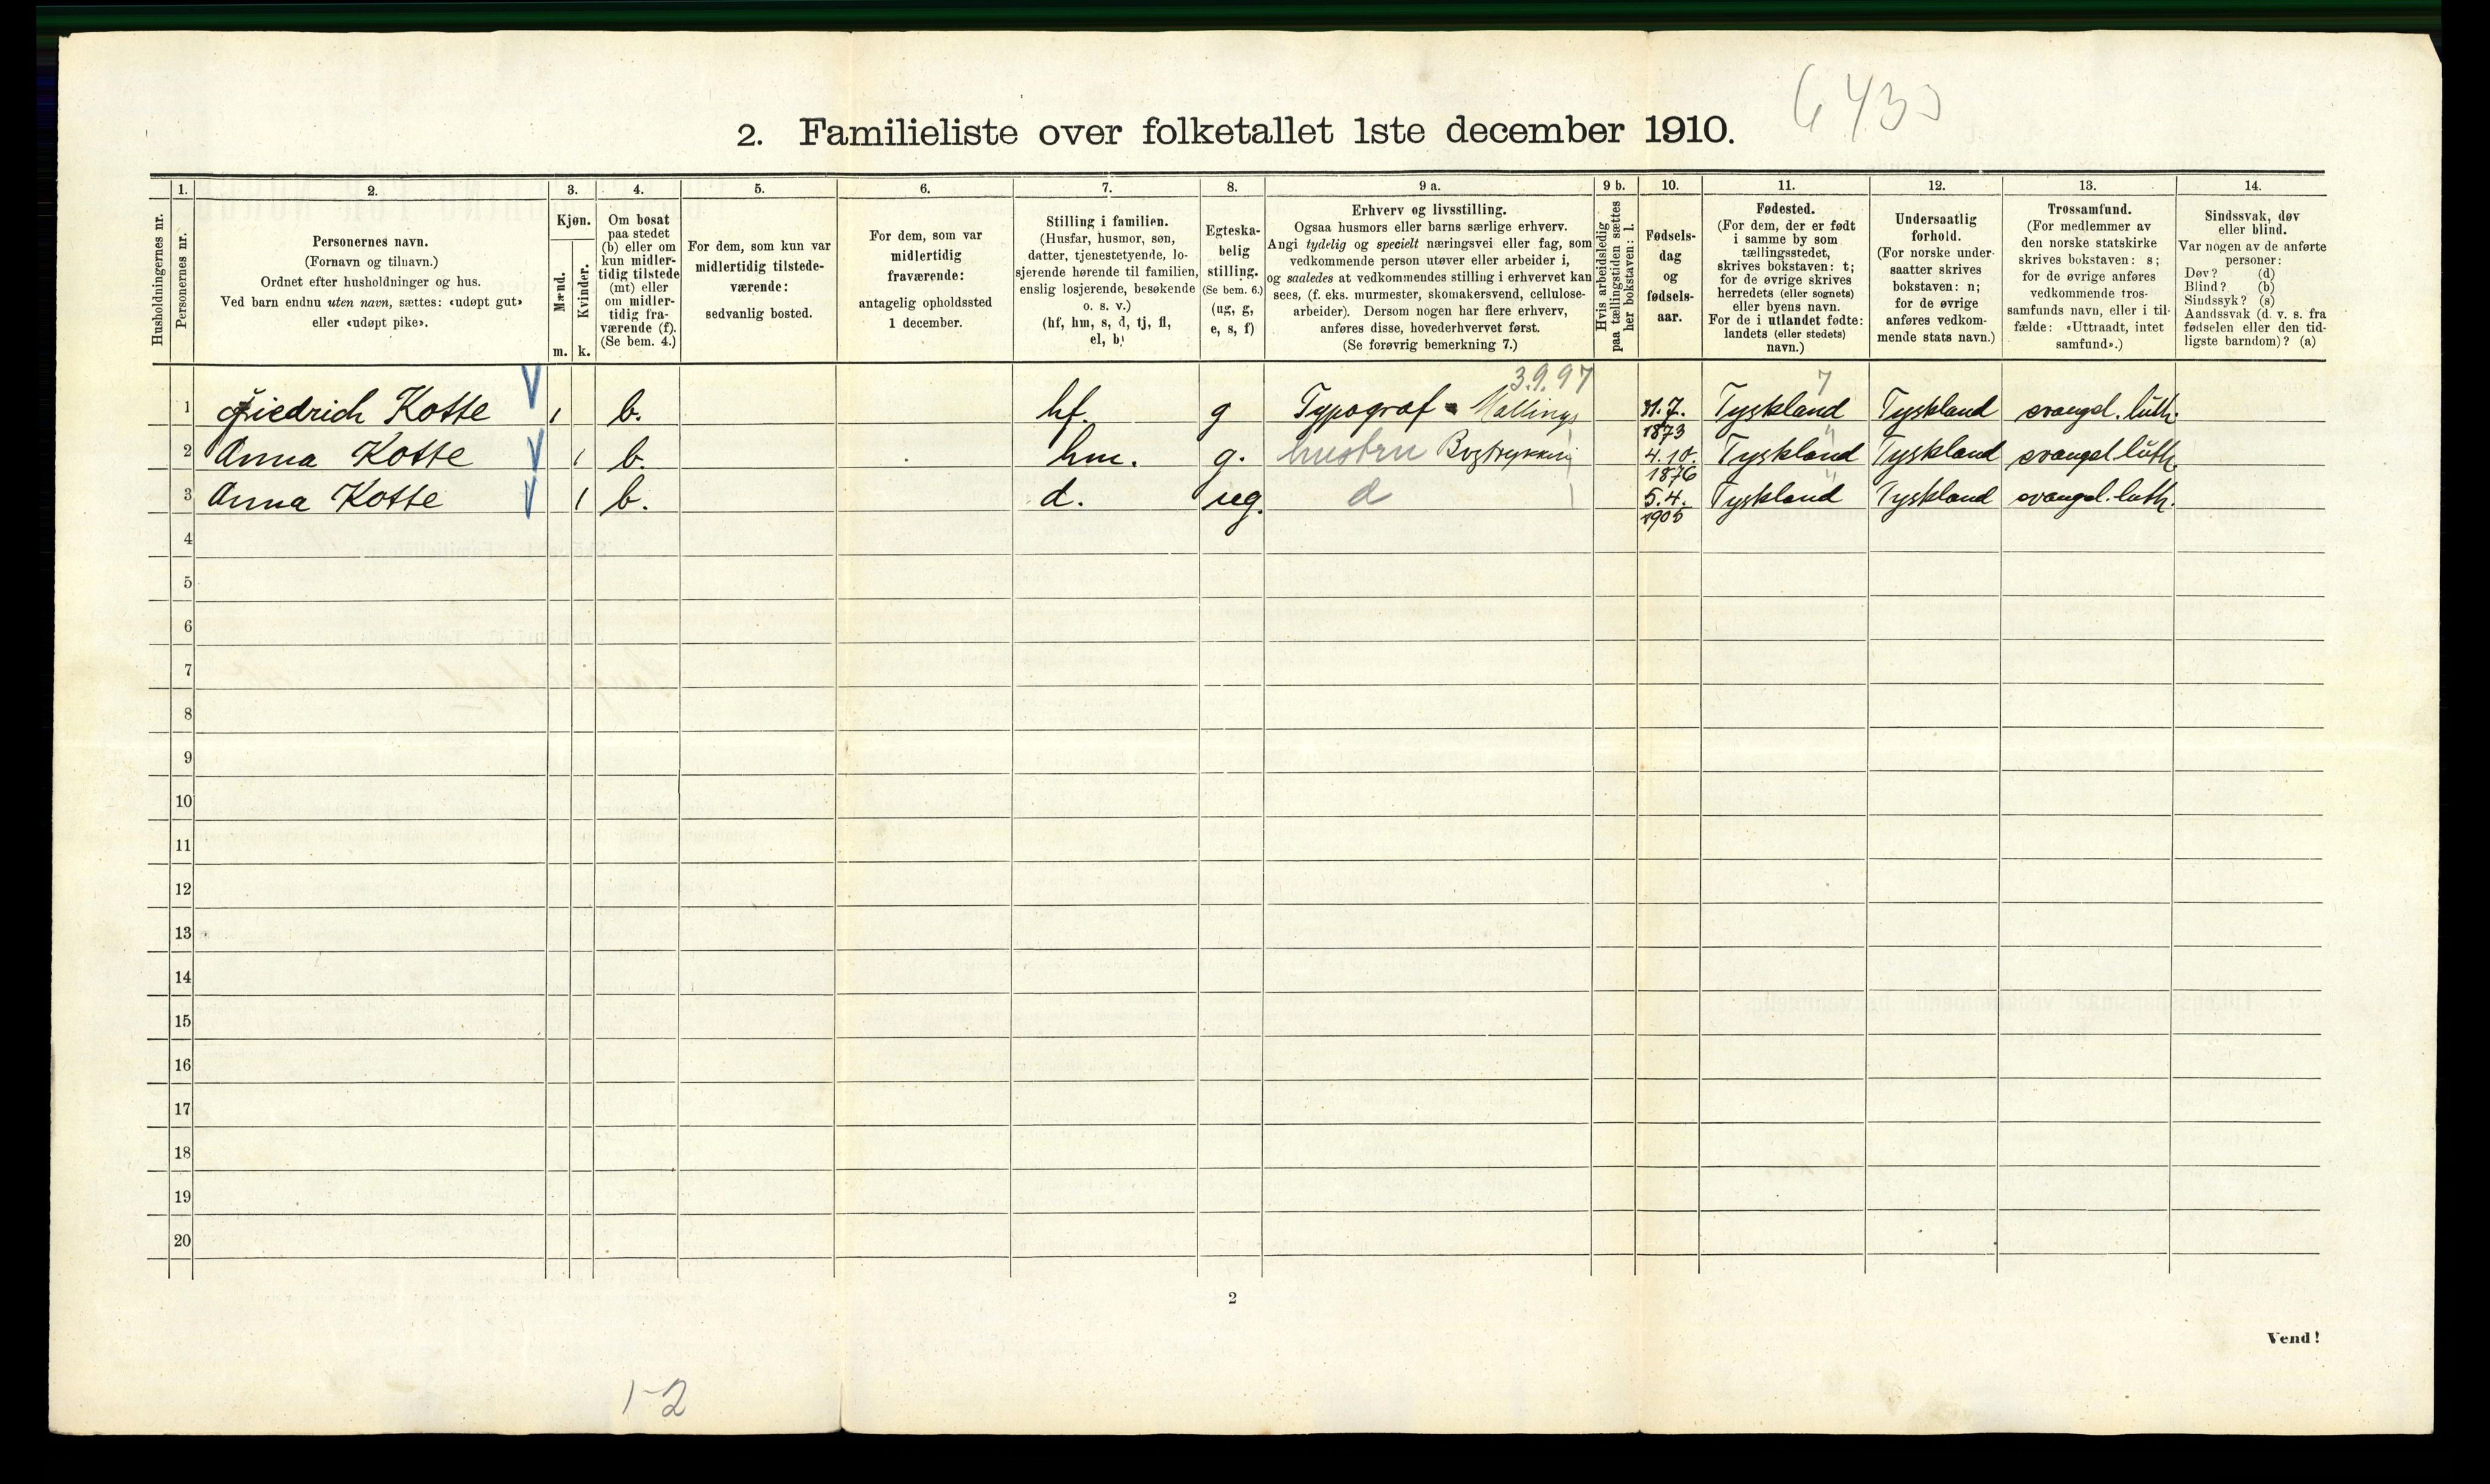 6430
2. Familieliste over folketallet 1ste december 1910.
Husholdningernes nr.
1.
Personernes nr.
2.
Personernes navn.
(Fornavn og tilnavn.)
Ordnet efter husholdninger og hus.
Ved barn endnu uten navn, sættes: «udøpt gut»
eller «udøpt pike».
3.
Kjøn.
Mænd.
Kvinder.
m. k.
4.
Om bosat
paa stedet
(b) eller om
kun midler-
tidig tilstede
(mt) eller
om midler-
tidig fra-
værende (f).
(Se bem. 4.)
5.
For dem, som kun var
midlertidig tilstede-
værende:
sedvanlig bosted.
6.
For dem, som var
midlertidig
fraværende:
antagelig opholdssted
1 december.
7.
Stilling i familien.
(Husfar, husmor, søn,
datter, tjenestetyende, lo-
sjerende hørende til familien,
enslig losjerende, besøkende
o. s. v.)
(hf, hm, s, d, tj, fl,
el, b)
8.
Egteska-
belig
stilling.
(Se bem. 6.)
(ug, g,
e, s, f)
9 a.
Erhverv og livsstilling.
Ogsaa husmors eller barns særlige erhverv.
Angi tydelig og specielt næringsvei eller fag, som
vedkommende person utøver eller arbeider i,
og saaledes at vedkommendes stilling i erhvervet kan
sees, (f. eks. murmester, skomakersvend, cellulose-
arbeider). Dersom nogen har flere erhverv,
anføres disse, hovederhvervet først.
(Se forøvrig bemerkning 7.)
9 b.
Hvis arbeidsledig
paa tællingstiden sættes
her bokstaven: l.
10.
Fødsels-
dag
og
fødsels-
aar.
11.
Fødested.
(For dem, der er født
i samme by som
tællingsstedet,
skrives bokstaven: t;
for de øvrige skrives
herredets (eller sognets)
eller byens navn.
For de i utlandet fødte:
landets (eller stedets)
navn.)
12.
Undersaatlig
forhold.
(For norske under-
saatter skrives
bokstaven: n;
for de øvrige
anføres vedkom-
mende stats navn.)
13.
Trossamfund.
(For medlemmer av
den norske statskirke
skrives bokstaven: s;
for de øvrige anføres
vedkommende tros-
samfunds navn, eller i til-
fælde: «Uttraadt, intet
samfund».)
14.
Sindssvak, døv
eller blind.
Var nogen av de anførte
personer:
Døv? (d)
Blind? (b)
Sindssyk? (s)
Aandssvak (d. v. s. fra
fødselen eller den tid-
ligste barndom)? (a)
3.9.97 7
1 Friedrich Kotte V 1 b. hf. g Typograf - Mallings 31.7. 1873 Tyskland Tyskland evangel. luth.
2 Anna Kotte V 1 b. hm. g. hustru Bogtrykkeri 4.10. 1876 Tyskland Tyskland evangel. luth.
3 Anna Kotte V 1 b. d. ug. d 5.4. 1905 Tyskland Tyskland evangel. luth.
4
5
6
7
8
9
10
11
12
13
14
15
16
17
18
19
20
2
Vend!
1-2